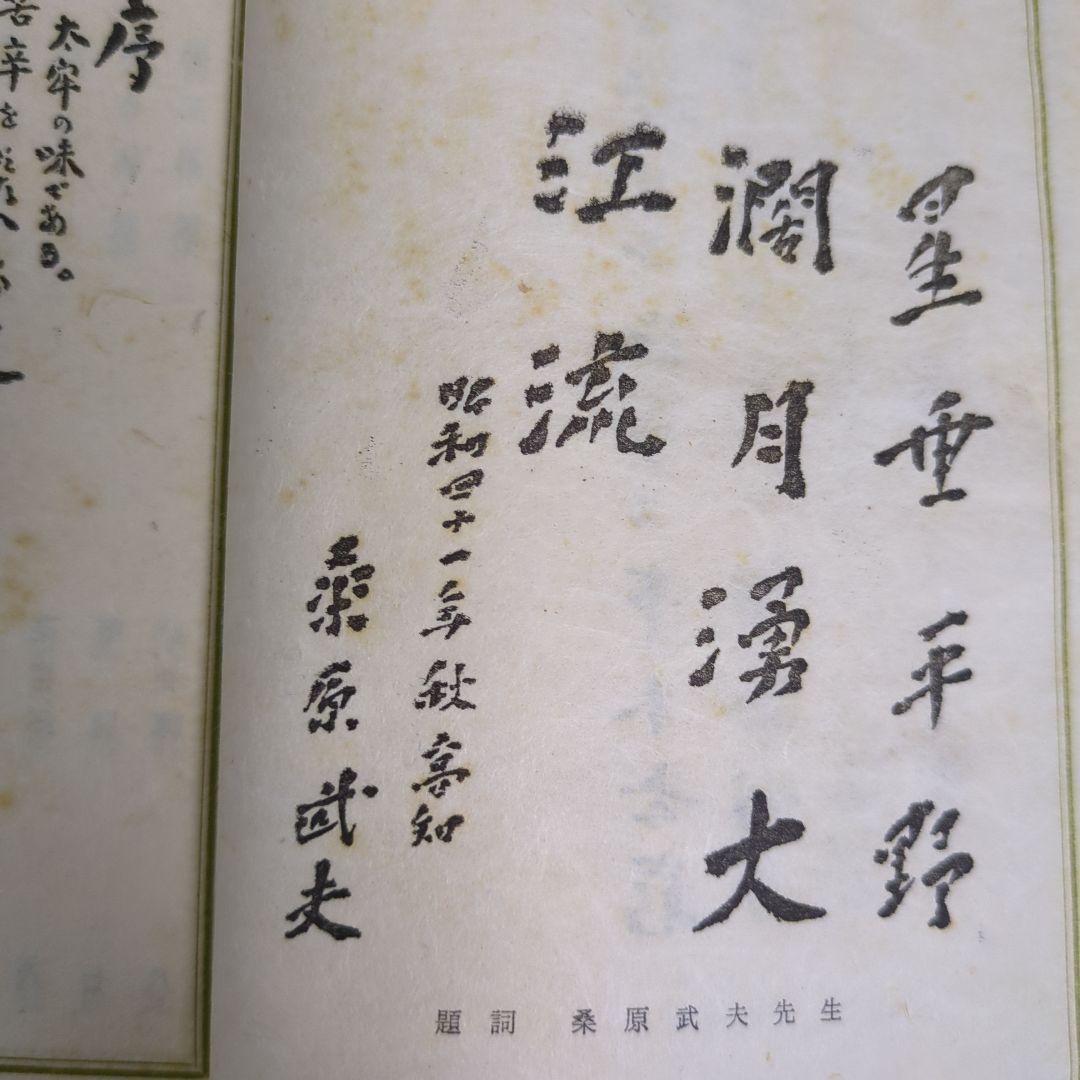 星垂平野
濶月湧大
江流
昭和四十一年秋高知
桑原武夫
題詞 桑原武夫先生
序
太牢の味である。
苦辛を